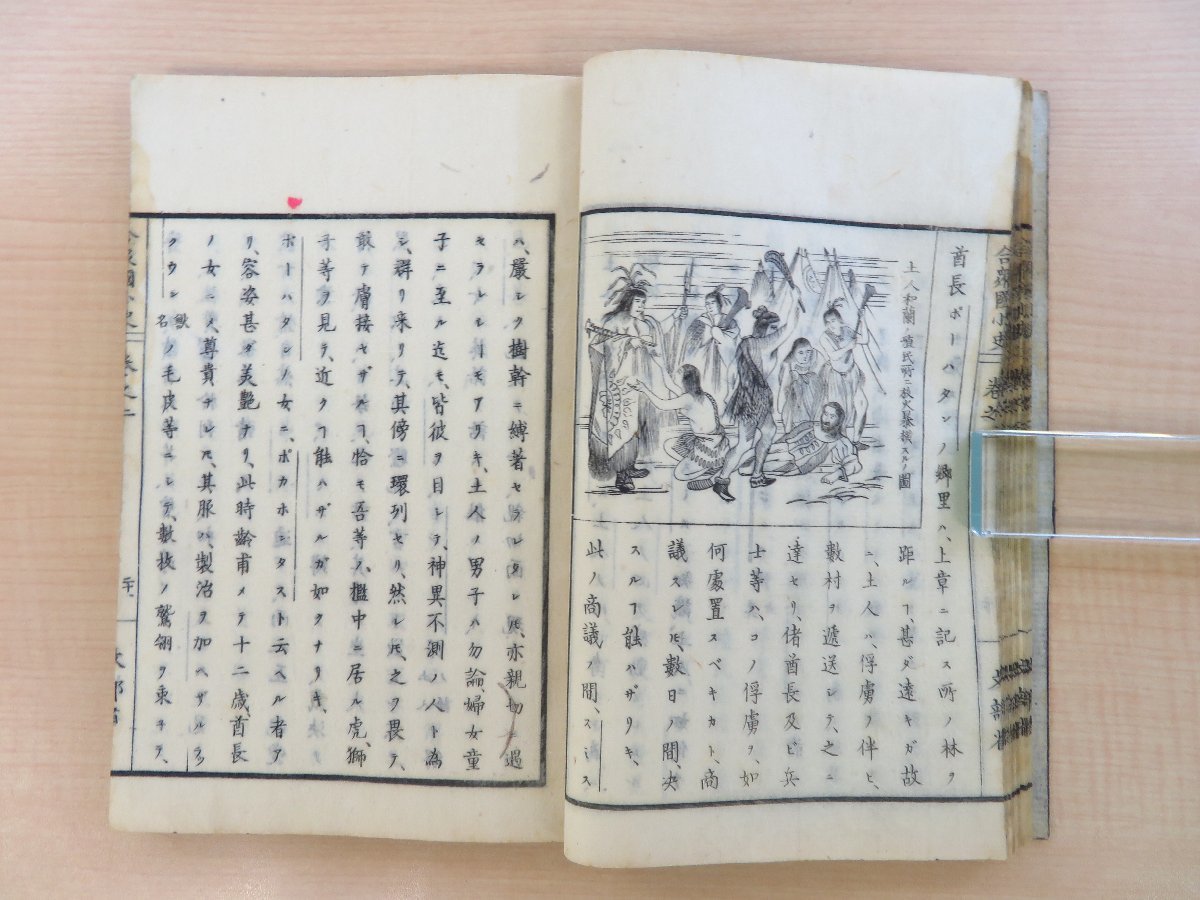 合衆國小史
卷之
文部省
酋長ポーハタンノ郷里ハ、上章ニ記ス所ノ林ヲ
土人和蘭ノ
圖
距ルヿ、甚ダ遠キガ故
ニ、土人ハ、俘虜ノ伴ヒ、
數村ヲ遞送シテ、之ニ
達セリ、偖酋長及ビ兵
士等ハ、コノ俘虜ヲ、如
何處置スベキカト、商
議スレ𪜈、數日ノ間、決
スルヿ能ハザリキ、
此ノ商議ノ間、スミス
ハ、嚴シク樹幹ニ縛著セラレタレ𪜈、亦親切ニ過
セラレシヿモアリキ、土人ノ男子ハ勿論、婦女童
子ニ至ル迄モ、皆彼ヲ目シテ、神異不測ノ人ト為
シ、群リ来リテ、其傍ニ環列セリ、然レ𪜈、之ヲ畏テ、
敢テ膚接セザルヿ、恰モ吾等ノ、檻中ニ居ル虎、獅
子等ヲ見テ、近クヿ能ハザルガ如クナリキ、
ポーハタンノ女ニ、ポカホンタスト云ヘル者ア
リ、容姿甚ダ美艶ナリ、此時齢甫メテ十二歳、酋長
ノ女ニメ尊貴ナレ𪜈、其服ハ製治ヲ加ヘザルラ
クウン獸名ノ毛皮等ニシテ、數枚ノ鷲翎ヲ束子テ、
卷之二